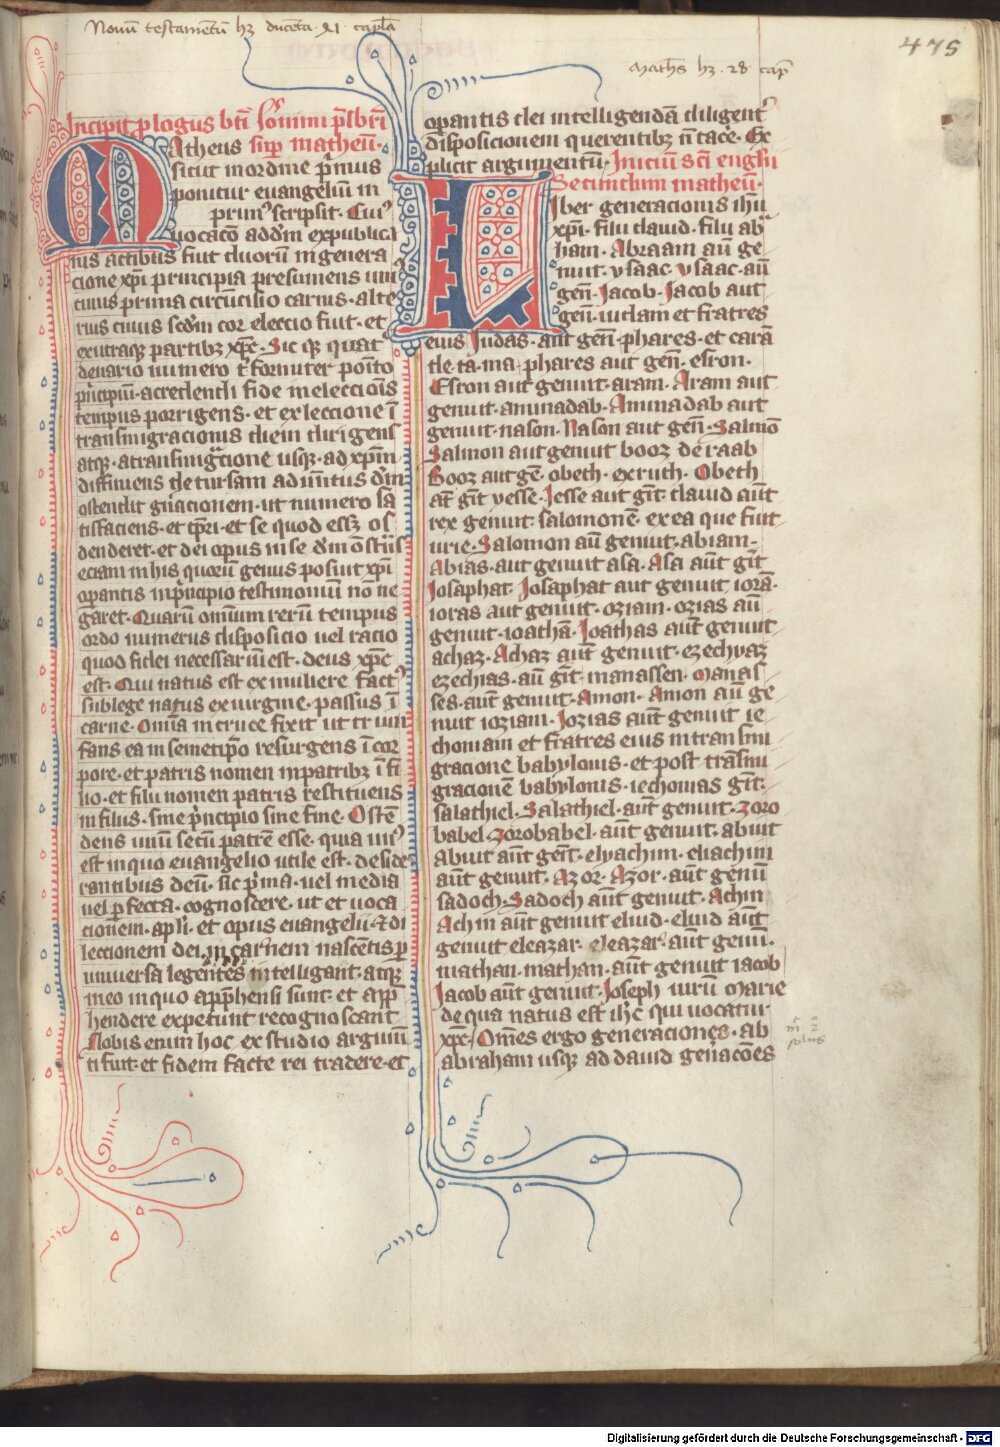 Novū testamentū hꝫ ducēta · xi · capl̄a
475
Mathꝰ hꝫ · 28 · cap̄
Incipit ꝓlogus bt̄i Ieronimi p̄sbrī
sup̄ matheū ·
Matheus
sicut in ordine p̄mus
ponitur euangeliū in
primꝰ scripsit · Cuiꝰ
uocacō ad dm̄ ex publica
nis actibus fuit duorū in genera
cione xp̄i principia presumens uni
cuius prima circūcisio carnis · alte
rius cuius scd̄m cor eleccio fuit · et
ex utraqꝫ partibꝫ xp̄c · Sic qꝫ quat
denario numero t̄formiter posito
p̄ncipiū · a credendi fide in eleccionis
tempus porrigens · et ex leccione ī
transmigracionis diem dirigens
atqꝫ · a transmigracione usqꝫ · ad xp̄m
diffiniens decursam aduentus dm̄
ostendit gn̄acionem · ut numero sa
tisfaciens · et tp̄ri · et se quod essꝫ os
denderet · et dei opus in se dm̄ ōstrās
eciam in his quorū genus posuit xp̄i
operantis in p̄ncipio testimoniū nō ne
garet · Quarū omnium rerū tempus
ordo numerus disposicio uel racio
quod fidei necessariū est · deus xp̄c
est · Qui natus est ex muliere factꝰ
sub lege natus ex uirgine · passus ī
carne · Omīa in cruce fixit ut trium
fans ea in semetip̄o resurgens ī cor
pore · et patris nomen in patribꝫ ī fi
lio · et filii nomen patris restituens
in filiis · sine p̄ncipio sine fine · Ostē
dens unū se cū patre esse · quia unꝰ
est in quo euangelio utile est · deside
rantibus deū · sic p̄ma · uel media
uel perfecta · cognoscere · ut et uoca
cionem · apl̄i · et opus euangelii · et di
leccionem dei in carnem nascētis ꝑ
uniuersa legentes intelligant · atqꝫ
in eo in quo app̄hensi sunt · et app̄
hendere expetunt recognoscant
Nobis enim hoc ex studio argum̄
ti fuit · et fidem facte rei tradere · et
operantis dei intelligendā diligentꝰ
disposicionem querentibꝫ n̄ tace · Ex
plicit argumentū · Iniciū sc̄i engl̄ii
Secundum matheū ·
Liber generacionis ih̄u
xp̄i · filii dauid · filii ab
ham · Abraam aū ge
nuit · ysaac · ysaac · aū
gen̄ · Jacob · Jacob aut
gen̄ · iudam et fratres
eius Judas · aut gen̄ · phares · et carā
de · ta · ma · phares aut gen̄ · esron ·
Esron aut genuit · aram · Aram aut
genuit · aminadab · Aminadab aut
genuit · nason · Nason aut gen̄ · Salmō
Salmon aut genuit booz de raab
Booz aut gē · obeth · ex ruth · Obeth
at̄ gīt yesse · Jesse aut gīt · dauid aūt
rex genuit · salomonē · ex ea que fuit
urie · Salomon aū genuit · abiam ·
Abias · aut genuit asa · Asa aūt gīt
Josaphat · Josaphat aut genuit iorā ·
ioras aut genuit · oziam · ozias aū
genuit · ioathā · Joathas aūt genuit
achaz · Achaz aūt genuit · ezechyaz
ezechias · aū gīt · manassen · Manas
ses · aūt genuit · Amon · Amon aū ge
nuit ioziam · Jozias aūt genuit ie
choniam et fratres eius in transmi
gracione babylonis · et post trāsmi
gracionē babylonis · iechonias gīt ·
salathiel · Salathiel · aūt genuit · Zoro
babel · Zorobabel · aūt genuit · abiut
Abiut aūt gen̄t · elyachim · eliachim
aūt genuit · Azor · Azor · aūt genuī
sadoch · Sadoch aūt genuit · Achin
Achin aūt genuit eliud · eliud aūt
genuit eleazar · eleazar · aūt genuī ·
mathan · mathan · aūt genuit iacob
Jacob aūt genuit · Joseph uirū Marie
de qua natus est ih̄c qui uocatur
xp̄c · Om̄es ergo generaciones · ab
abraham usqꝫ ad dauid gen̄acōes
Digitalisierung gefördert durch die Deutsche Forschungsgemeinschaft - DFG